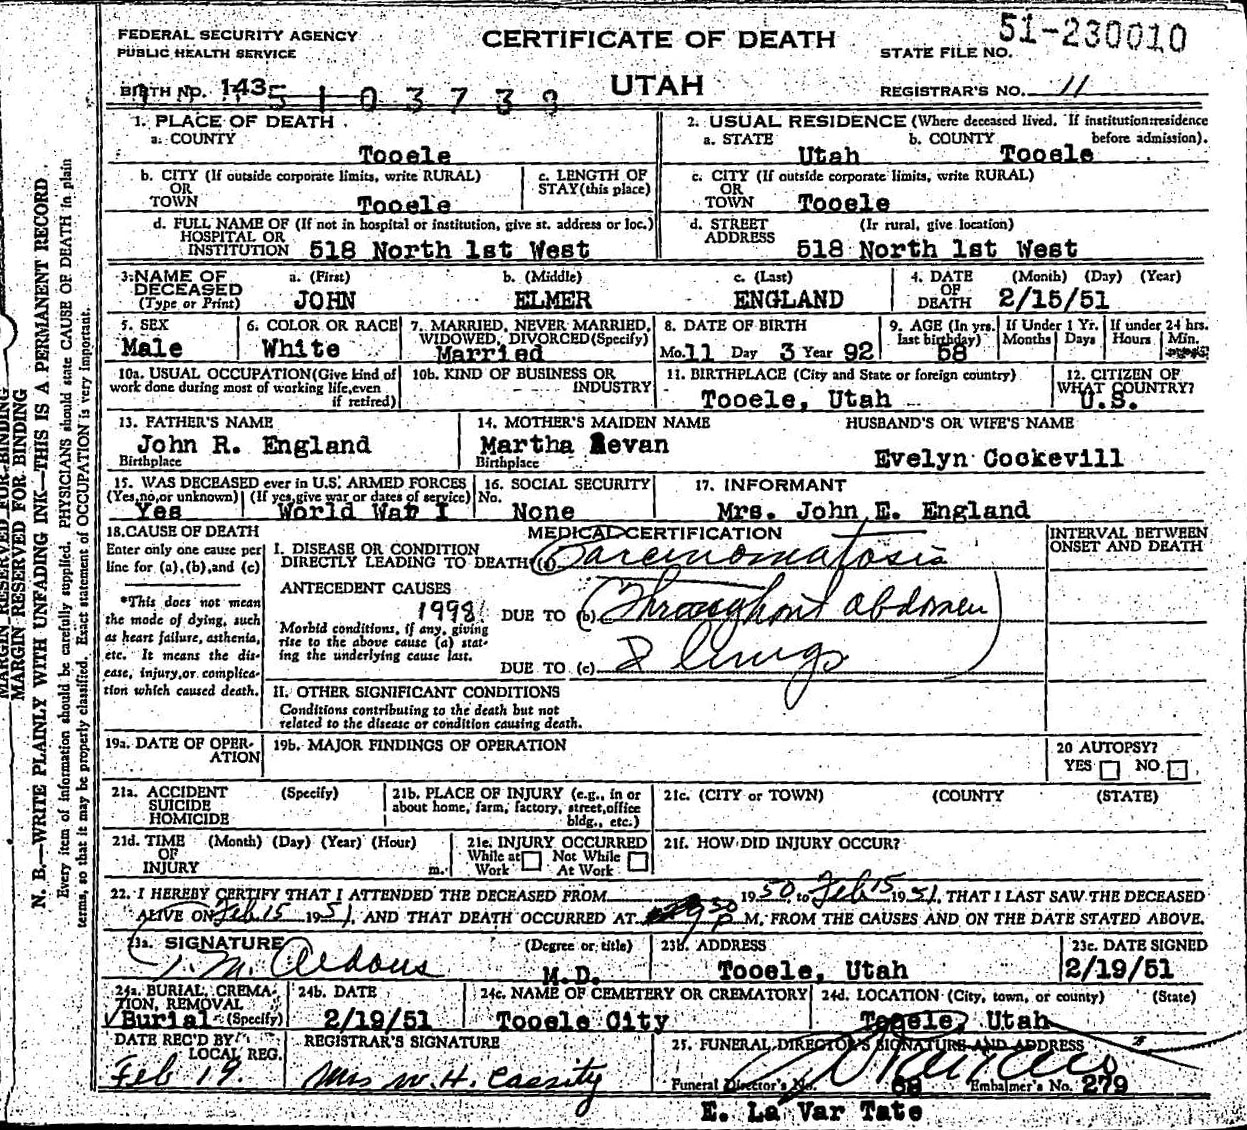 FEDERAL SECURITY AGENCY
PUBLIC HEALTH SERVICE
CERTIFICATE OF DEATH
UTAH
STATE FILE NO. 51-230010
BIRTH NO. 143
REGISTRAR'S NO. 11
1. PLACE OF DEATH
a. COUNTY
Tooele
2. USUAL RESIDENCE (Where deceased lived. If institution: residence before admission).
a. STATE Utah b. COUNTY Tooele
b. CITY (If outside corporate limits, write RURAL)
OR
TOWN Tooele
c. LENGTH OF
STAY (this place)
c. CITY (If outside corporate limits, write RURAL)
OR
TOWN Tooele
d. FULL NAME OF (If not in hospital or institution, give st. address or loc.)
HOSPITAL OR
INSTITUTION 518 North 1st West
d. STREET (If rural, give location)
ADDRESS 518 North 1st West
3. NAME OF DECEASED
(Type or Print)
a. (First) b. (Middle) c. (Last)
JOHN ELMER ENGLAND
4. DATE OF DEATH (Month) (Day) (Year)
2/15/51
5. SEX
Male
6. COLOR OR RACE
White
7. MARRIED, NEVER MARRIED,
WIDOWED, DIVORCED (Specify)
Married
8. DATE OF BIRTH
Mo. 11 Day 3 Year 92
9. AGE (In yrs. last birthday)
58
If Under 1 Yr.
Months Days
If under 24 hrs.
Hours Min.
10a. USUAL OCCUPATION (Give kind of
work done during most of working life, even
if retired)
10b. KIND OF BUSINESS OR
INDUSTRY
11. BIRTHPLACE (City and State or foreign country)
Tooele, Utah
12. CITIZEN OF
WHAT COUNTRY?
U.S.
13. FATHER'S NAME
John R. England
Birthplace
14. MOTHER'S MAIDEN NAME
Martha Bevan
Birthplace
HUSBAND'S OR WIFE'S NAME
Evelyn Cockevill
15. WAS DECEASED ever in U.S. ARMED FORCES
(Yes, no, or unknown) (If yes, give war or dates of service)
Yes World War I
16. SOCIAL SECURITY
No.
None
17. INFORMANT
Mrs. John E. England
18. CAUSE OF DEATH
Enter only one cause per
line for (a), (b), and (c)
*This does not mean
the mode of dying, such
as heart failure, asthenia,
etc. It means the dis-
ease, injury, or complica-
tion which caused death.
MEDICAL CERTIFICATION
I. DISEASE OR CONDITION
DIRECTLY LEADING TO DEATH* (a) Carcinomatosis
ANTECEDENT CAUSES
1998
Morbid conditions, if any, giving
rise to the above cause (a) stat-
ing the underlying cause last.
DUE TO (b) Throughout abdomen
DUE TO (c) & lungs
INTERVAL BETWEEN
ONSET AND DEATH
II. OTHER SIGNIFICANT CONDITIONS
Conditions contributing to the death but not
related to the disease or condition causing death.
19a. DATE OF OPER-
ATION
19b. MAJOR FINDINGS OF OPERATION
20 AUTOPSY?
YES NO
21a. ACCIDENT (Specify)
SUICIDE
HOMICIDE
21b. PLACE OF INJURY (e.g., in or
about home, farm, factory, street, office
bldg., etc.)
21c. (CITY or TOWN) (COUNTY (STATE)
21d. TIME (Month) (Day) (Year) (Hour)
OF
INJURY m.
21e. INJURY OCCURRED
While at Work Not While At Work
21f. HOW DID INJURY OCCUR?
22. I HEREBY CERTIFY THAT I ATTENDED THE DECEASED FROM 1950, to Feb 15 1951, THAT I LAST SAW THE DECEASED
ALIVE ON Feb 15 1951, AND THAT DEATH OCCURRED AT P M, FROM THE CAUSES AND ON THE DATE STATED ABOVE.
23a. SIGNATURE (Degree or title)
T. M. Aldous M.D.
23b. ADDRESS
Tooele, Utah
23c. DATE SIGNED
2/19/51
24a. BURIAL, CREMA-
TION, REMOVAL
Burial (Specify)
24b. DATE
2/19/51
24c. NAME OF CEMETERY OR CREMATORY
Tooele City
24d. LOCATION (City, town, or county) (State)
Tooele, Utah
DATE REC'D BY
LOCAL REG.
Feb 19
REGISTRAR'S SIGNATURE
Mrs W. H. Cassity
25. FUNERAL DIRECTOR'S SIGNATURE AND ADDRESS
Funeral Director's No. 68 Embalmer's No. 279
E. La Var Tate
MARGIN RESERVED FOR BINDING
MARGIN RESERVED FOR BINDING
N. B.—WRITE PLAINLY WITH UNFADING INK—THIS IS A PERMANENT RECORD.
Every item of information should be carefully supplied. PHYSICIANS should state CAUSE OF DEATH in plain
terms, so that it may be properly classified. Exact statement of OCCUPATION is very important.